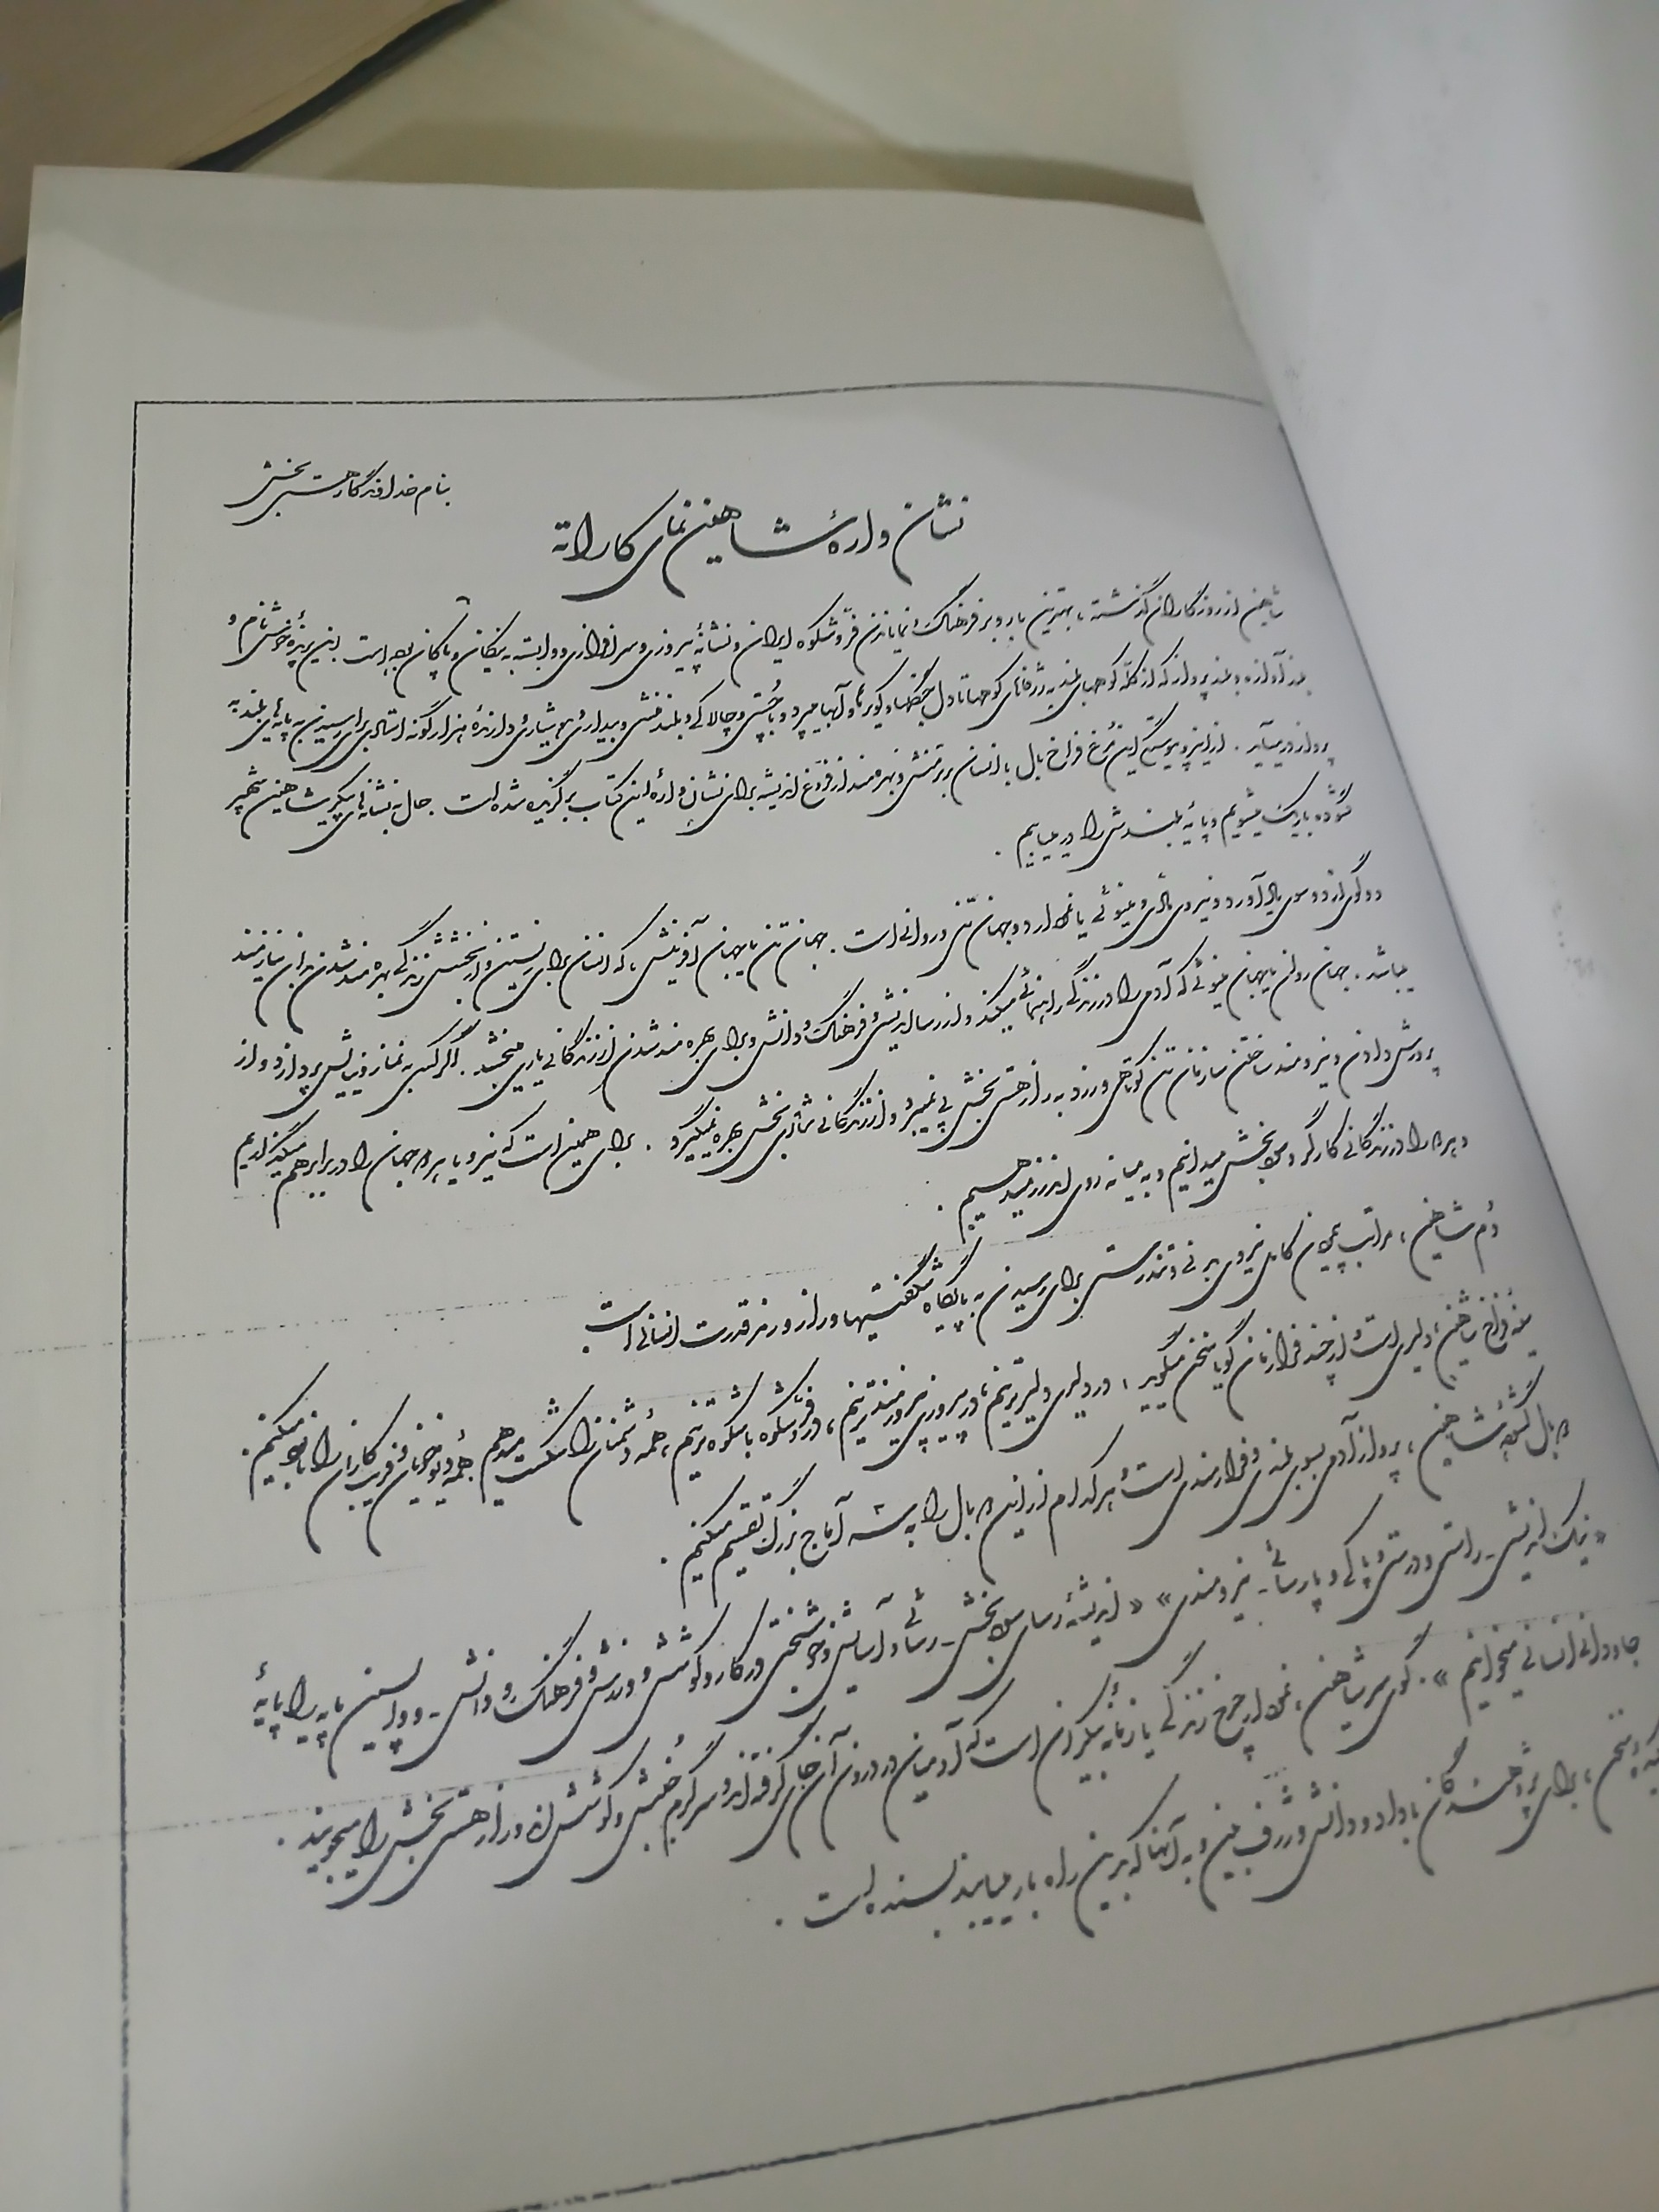 بنام خداوندگار هستی بخش
نشان واره شاهین نمای کاراته
شاهین از روزگاران گذشته، بهترین یار و بر فرهنگ و نمایانزن فرّ و شکوه ایران و نشانه پیروزی و سرافرازی و وابسته به نیکان و پاکان بوده است. این پرنده خوش نام و
بلند آوازه و بلند پرواز که از کلّه کوههای بلند به ژرفنای کوهها تا دل جنگلها و کویرها و آبها میپرد و با چُستی و چالاکی و بلند منشی و بیداری و هوشیاری و دارنده هزار گونه
پرواز در میآید. از اینرو پیوستگی این مُرغ فراخ بال با انسان برتر منش و بهره مند از فروغ اندیشه برای نشان واره این کتاب برگزیده شده است. حال به نشانه های پیکر شاهین شهپر
گشوده باریک میشویم و پایه بلندش را در مییابیم.
دو گوی از دو سوی بال آورد و نیروی مادّی و مینوئی یا نمودار دو جهان تنی و روانی است. جهان تن یا جهان آفرینش، که انسان برای زیستن و از بخشش زندگی بهره مند شدن بدان نیازمند
میباشد. جهان روان یا جهان مینوئی که آدمی را در زندگی راهنمائی میکند و از رسا اندیشی و فرهنگ و دانش و برای بهره مند شدن از زندگانی یاری میبخشد. اگر کسی به نماز و نیایش پردازد و از
پرورش دادن و نیرومند ساختن سازمان تن کوتاهی ورزد به راز هستی بخش پی نمیبرد و از زندگانی شادی بخش بهره نمیگیرد. برای همین است که نیرو یا هر دو جهان را در برابر هم میگذاریم
و هر دو را در زندگانی کارگر و سود بخش میدانیم و به میانه روی اندرز میدهیم.
دُم شاهین، مراتب پیمودن کامل نیروی بدنی و تندرستی برای رسیدن به پایگاه شگفتیها و راز و رمز قدرت انسانی است.
سینه فراخ شاهین، دلیری است و از چند فراز بمان گویا سخن میگوید، در دلیری دلیرترینیم، در پیروزی پیروزمندترینیم، در فرّ و شکوه با شکوه ترینیم، همه دشمنان را شکست میدهیم همه دیو خویان و فریب کاران را نابود میکنیم.
دو بال گشوده شاهین، پرواز آدمی بسوی بلندی و فرازمندی است و هر کدام از این دو بال را به سه آماج بزرگ تقسیم میکنیم.
«نیک اندیشی - راستی و درستی و پاکی و پارسائی - نیرومندی» «اندیشه رسای سود بخش - رسائی و آسایش و خوشبختی در کار و کوشش و ورزش و فرهنگ و دانش - و واپسین پایه را پایه
جاودانی انسانی میخوانیم». گوی سر شاهین، نمودار چرخ زندگی یا زمانه بیکران است که آدمیان در درون آن جای گرفته اند و سرگرم جُنبش و کوشش اند و راز هستی بخش را میجویند.
سخن، برای پژوهندگان با داد و دانش و ژرف بین و به آنها که بدین راه بار مییابند بسنده است.